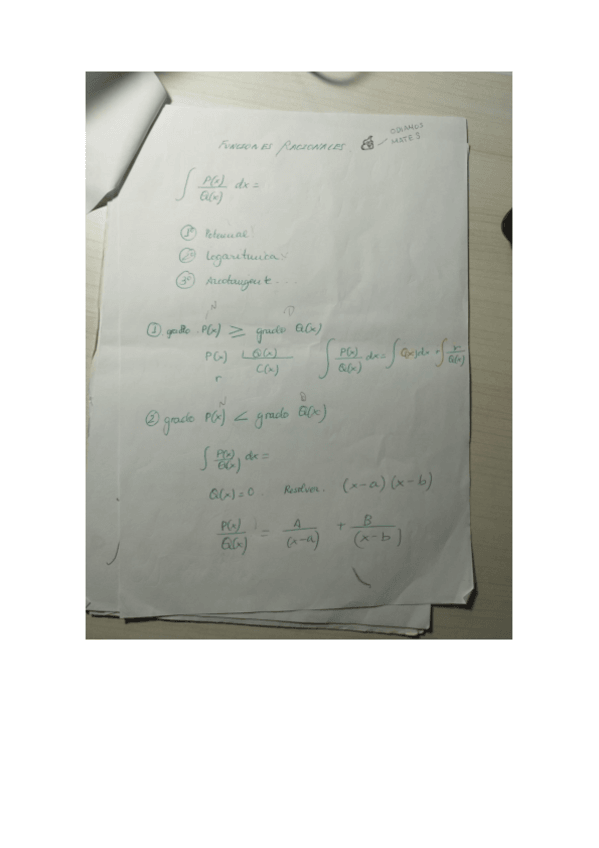 FUNCIONES RACIONALES
ODIAMOS
MATES
∫ P(x)/Q(x) dx =
1º Potencial
2º Logarítmica
3º Arcotangente...
N D
① grado P(x) ≥ grado Q(x)
P(x) Q(x) ∫ P(x)/Q(x) dx = ∫ C(x) dx + ∫ r/Q(x)
r C(x)
N D
② grado P(x) < grado Q(x)
∫ P(x)/Q(x) dx =
Q(x) = 0. Resolver. (x-a) (x-b)
P(x)/Q(x) = A/(x-a) + B/(x-b)